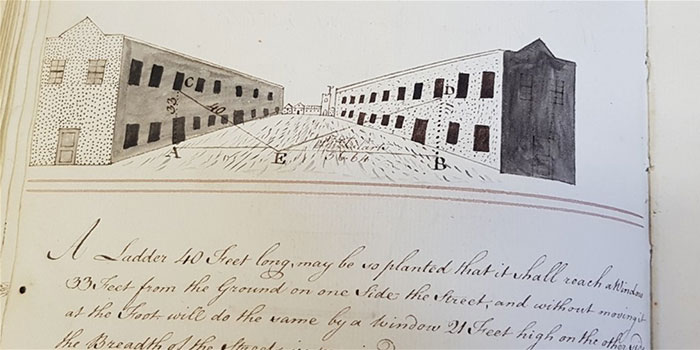 C
D
33
40
21
A
E
B
A Ladder 40 Feet long, may be so planted that it shall reach a Window
33 Feet from the Ground on one Side the Street, and without moving it
at the Foot will do the same by a Window 21 Feet high on the other side
the Breadth of the Street is